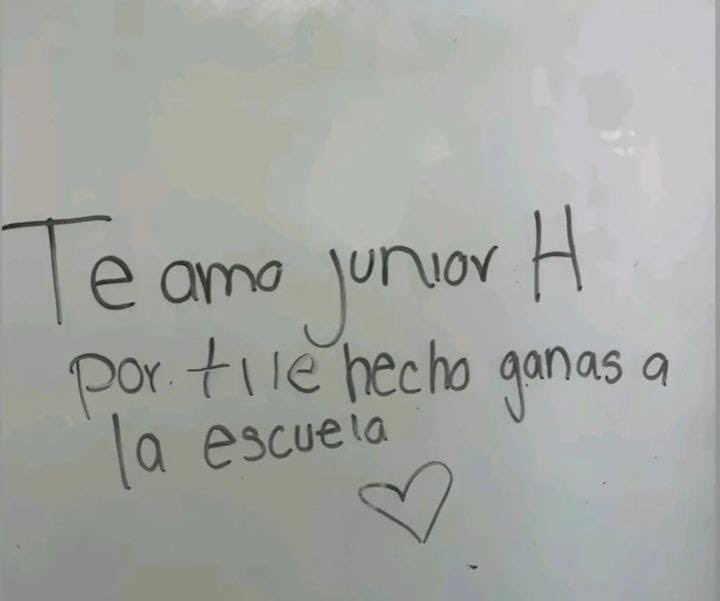 Te amo junior H
por. ti le hecho ganas a
la escuela